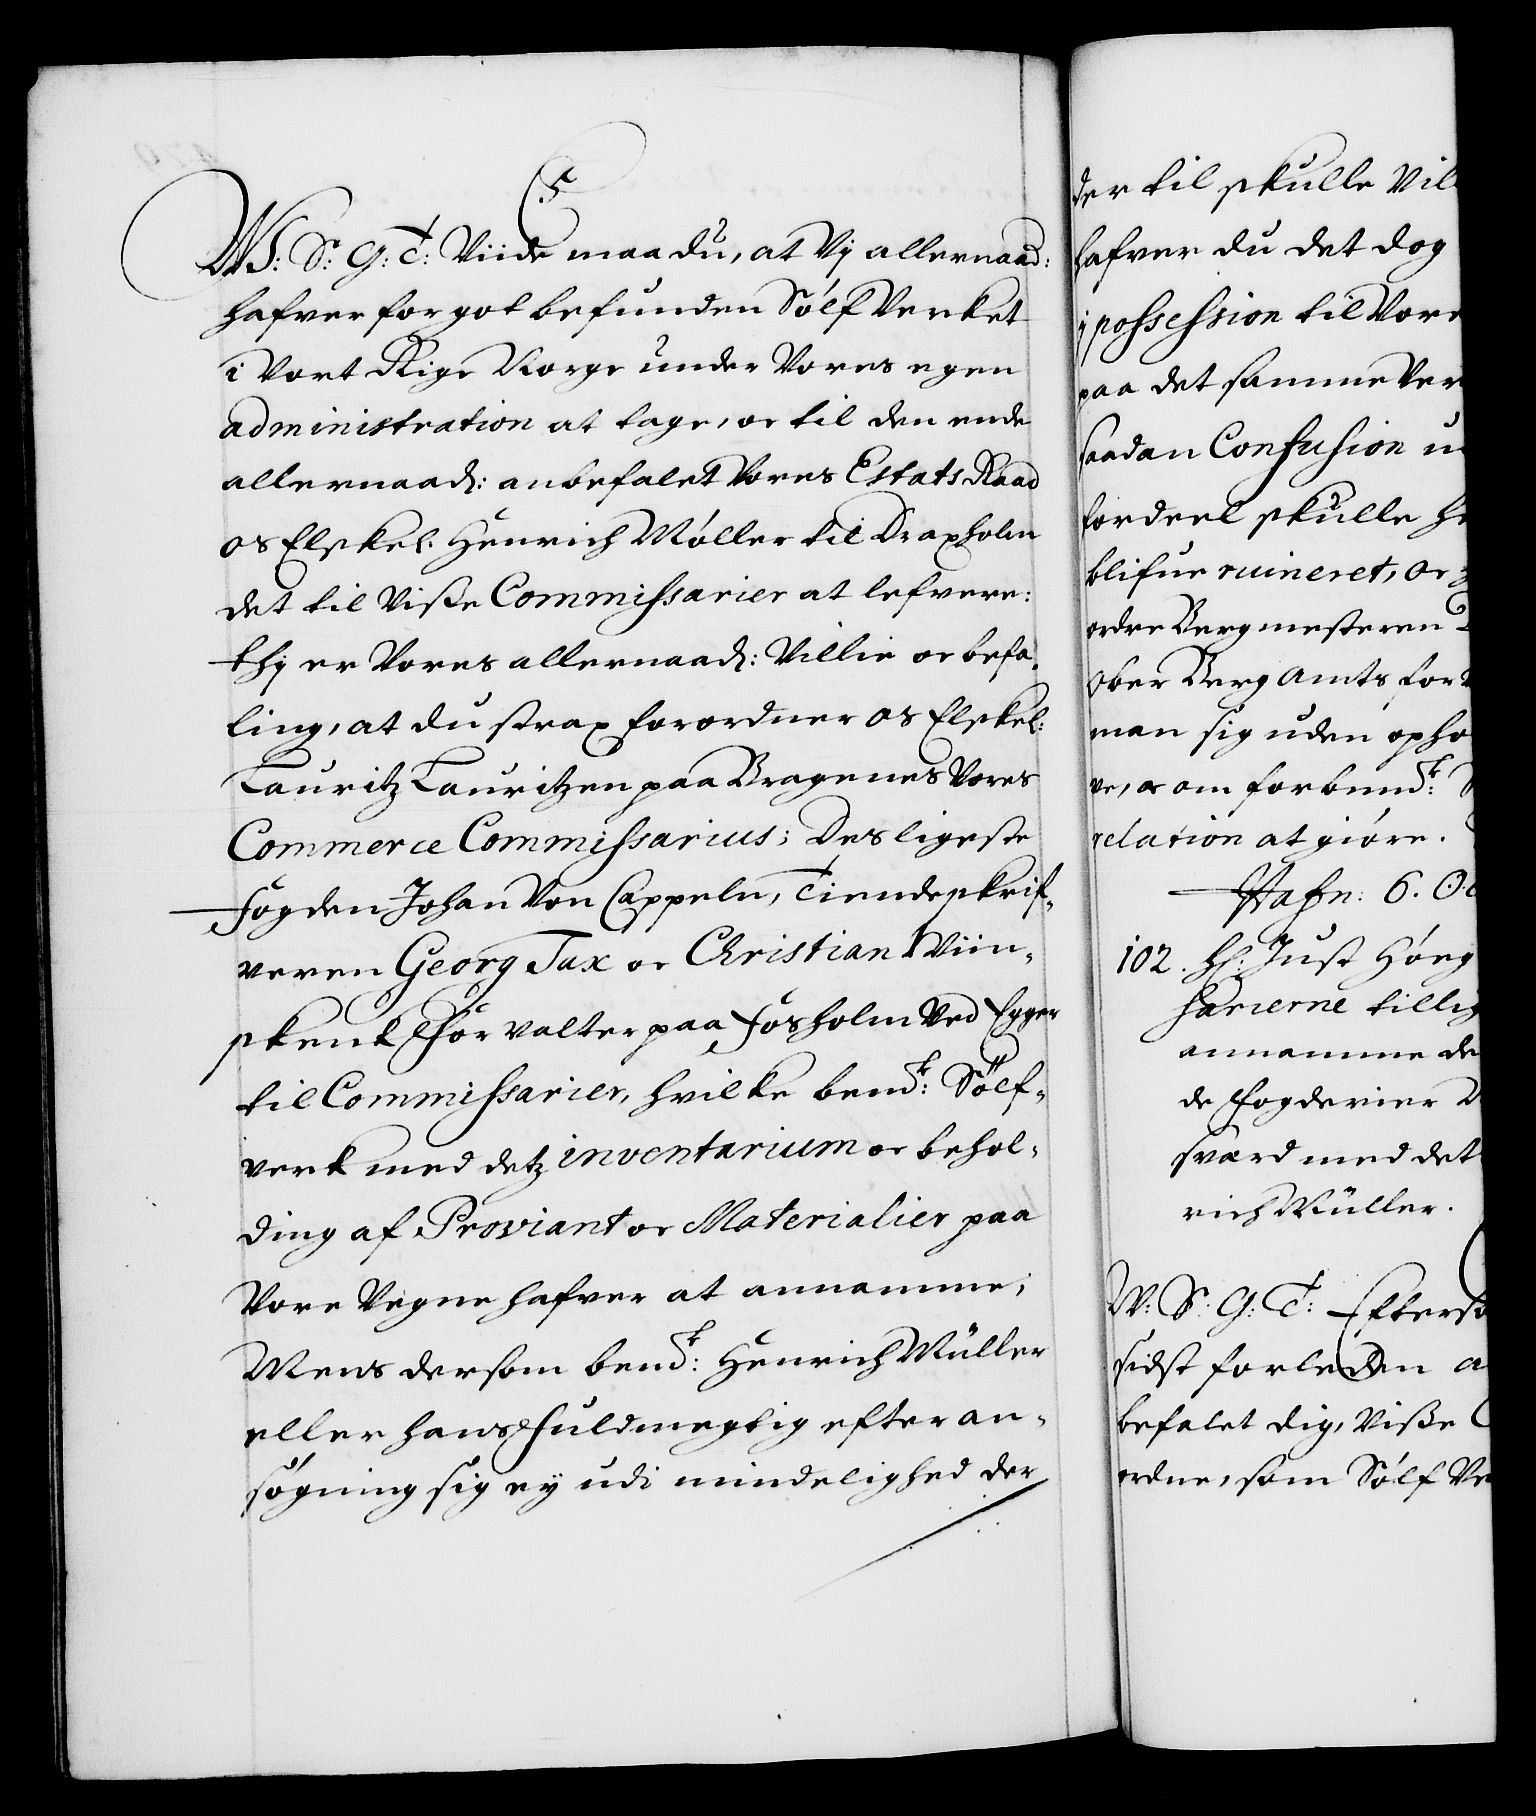 W: S: G: T: Viide maa du, at Vj allernaad:
hafver for got befunden Sølf Verket
i Vort Rige Norge under Vores egen
administration at tage, oc til den ende
allernaad: anbefalet Vores Estats Raad
os Elskel. Henrich Møller til Draxholm
det til Viße Commissarier at lefvere:
thj er Vores allernaad: Villie oc befa-
ling, at du strax forordner os Elskel:
Lauritz Lauritzen paa Bragenes Vores
Commerce Commissarius; Desligeste
fogden Johan Von Cappeln, Tiendeskrif-
veren Georg Tax oc Christian Viin-
skenk Forvalter paa Fosholm Ved Eger
til Commissarier, hvilke bemdt: Sölf-
verk med detz inventarium oc behol-
ding af Proviant oc Materialier paa
Vore Vegne hafver at annamme;
Mens dersom bemdt: Henrich Müller
eller hans fuldmegtig efter an-
søgning sig ej udi mindelighed der
der til skulle Vil
hafver du det dog
j possession til Vor
paa det samme Ver
saadan Confusion u
fordeel skulle h
blifve ruineret, oc
ordre Bergmesteren
Ober Berg Amts for
man sig uden opho
ve, oc om forbemdt:
relation at giøre.
Hafn: 6. Oc
102. H: Just Høeg
sarierne tillig
annamme de
de fogderier
sværd med det
rich Müller.
W: S: G: T: Efterso
sidst forleden a
befalet dig, Viße C
ordne, som Sølf Ve